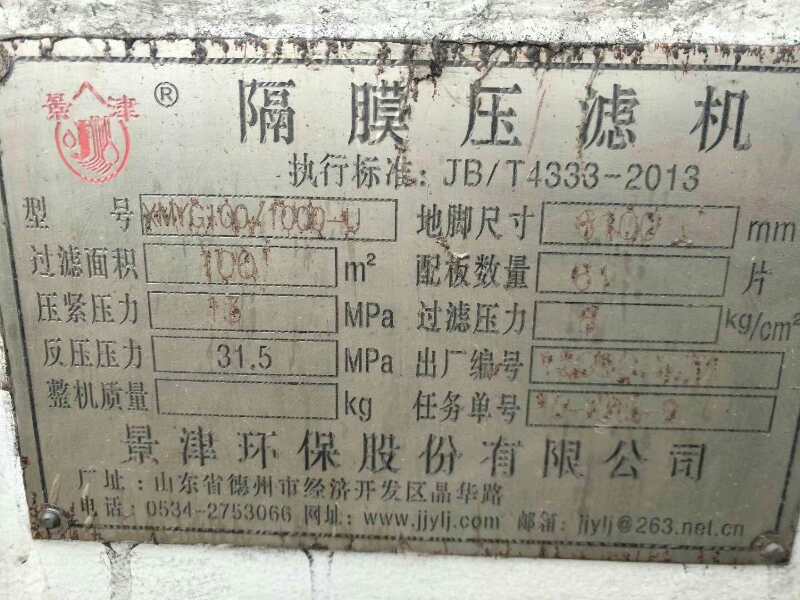 景津 ® 隔膜压滤机
执行标准: JB/T4333-2013
型 号 XMYG100/1000-U 地脚尺寸 mm
过滤面积 100 m² 配板数量 片
压紧压力 MPa 过滤压力 kg/cm²
反压压力 31.5 MPa 出厂编号
整机质量 kg 任务单号
景津环保股份有限公司
厂址: 山东省德州市经济开发区晶华路
电话: 0534-2753066 网址: www.jjylj.com 邮箱: jjylj@263.net.cn